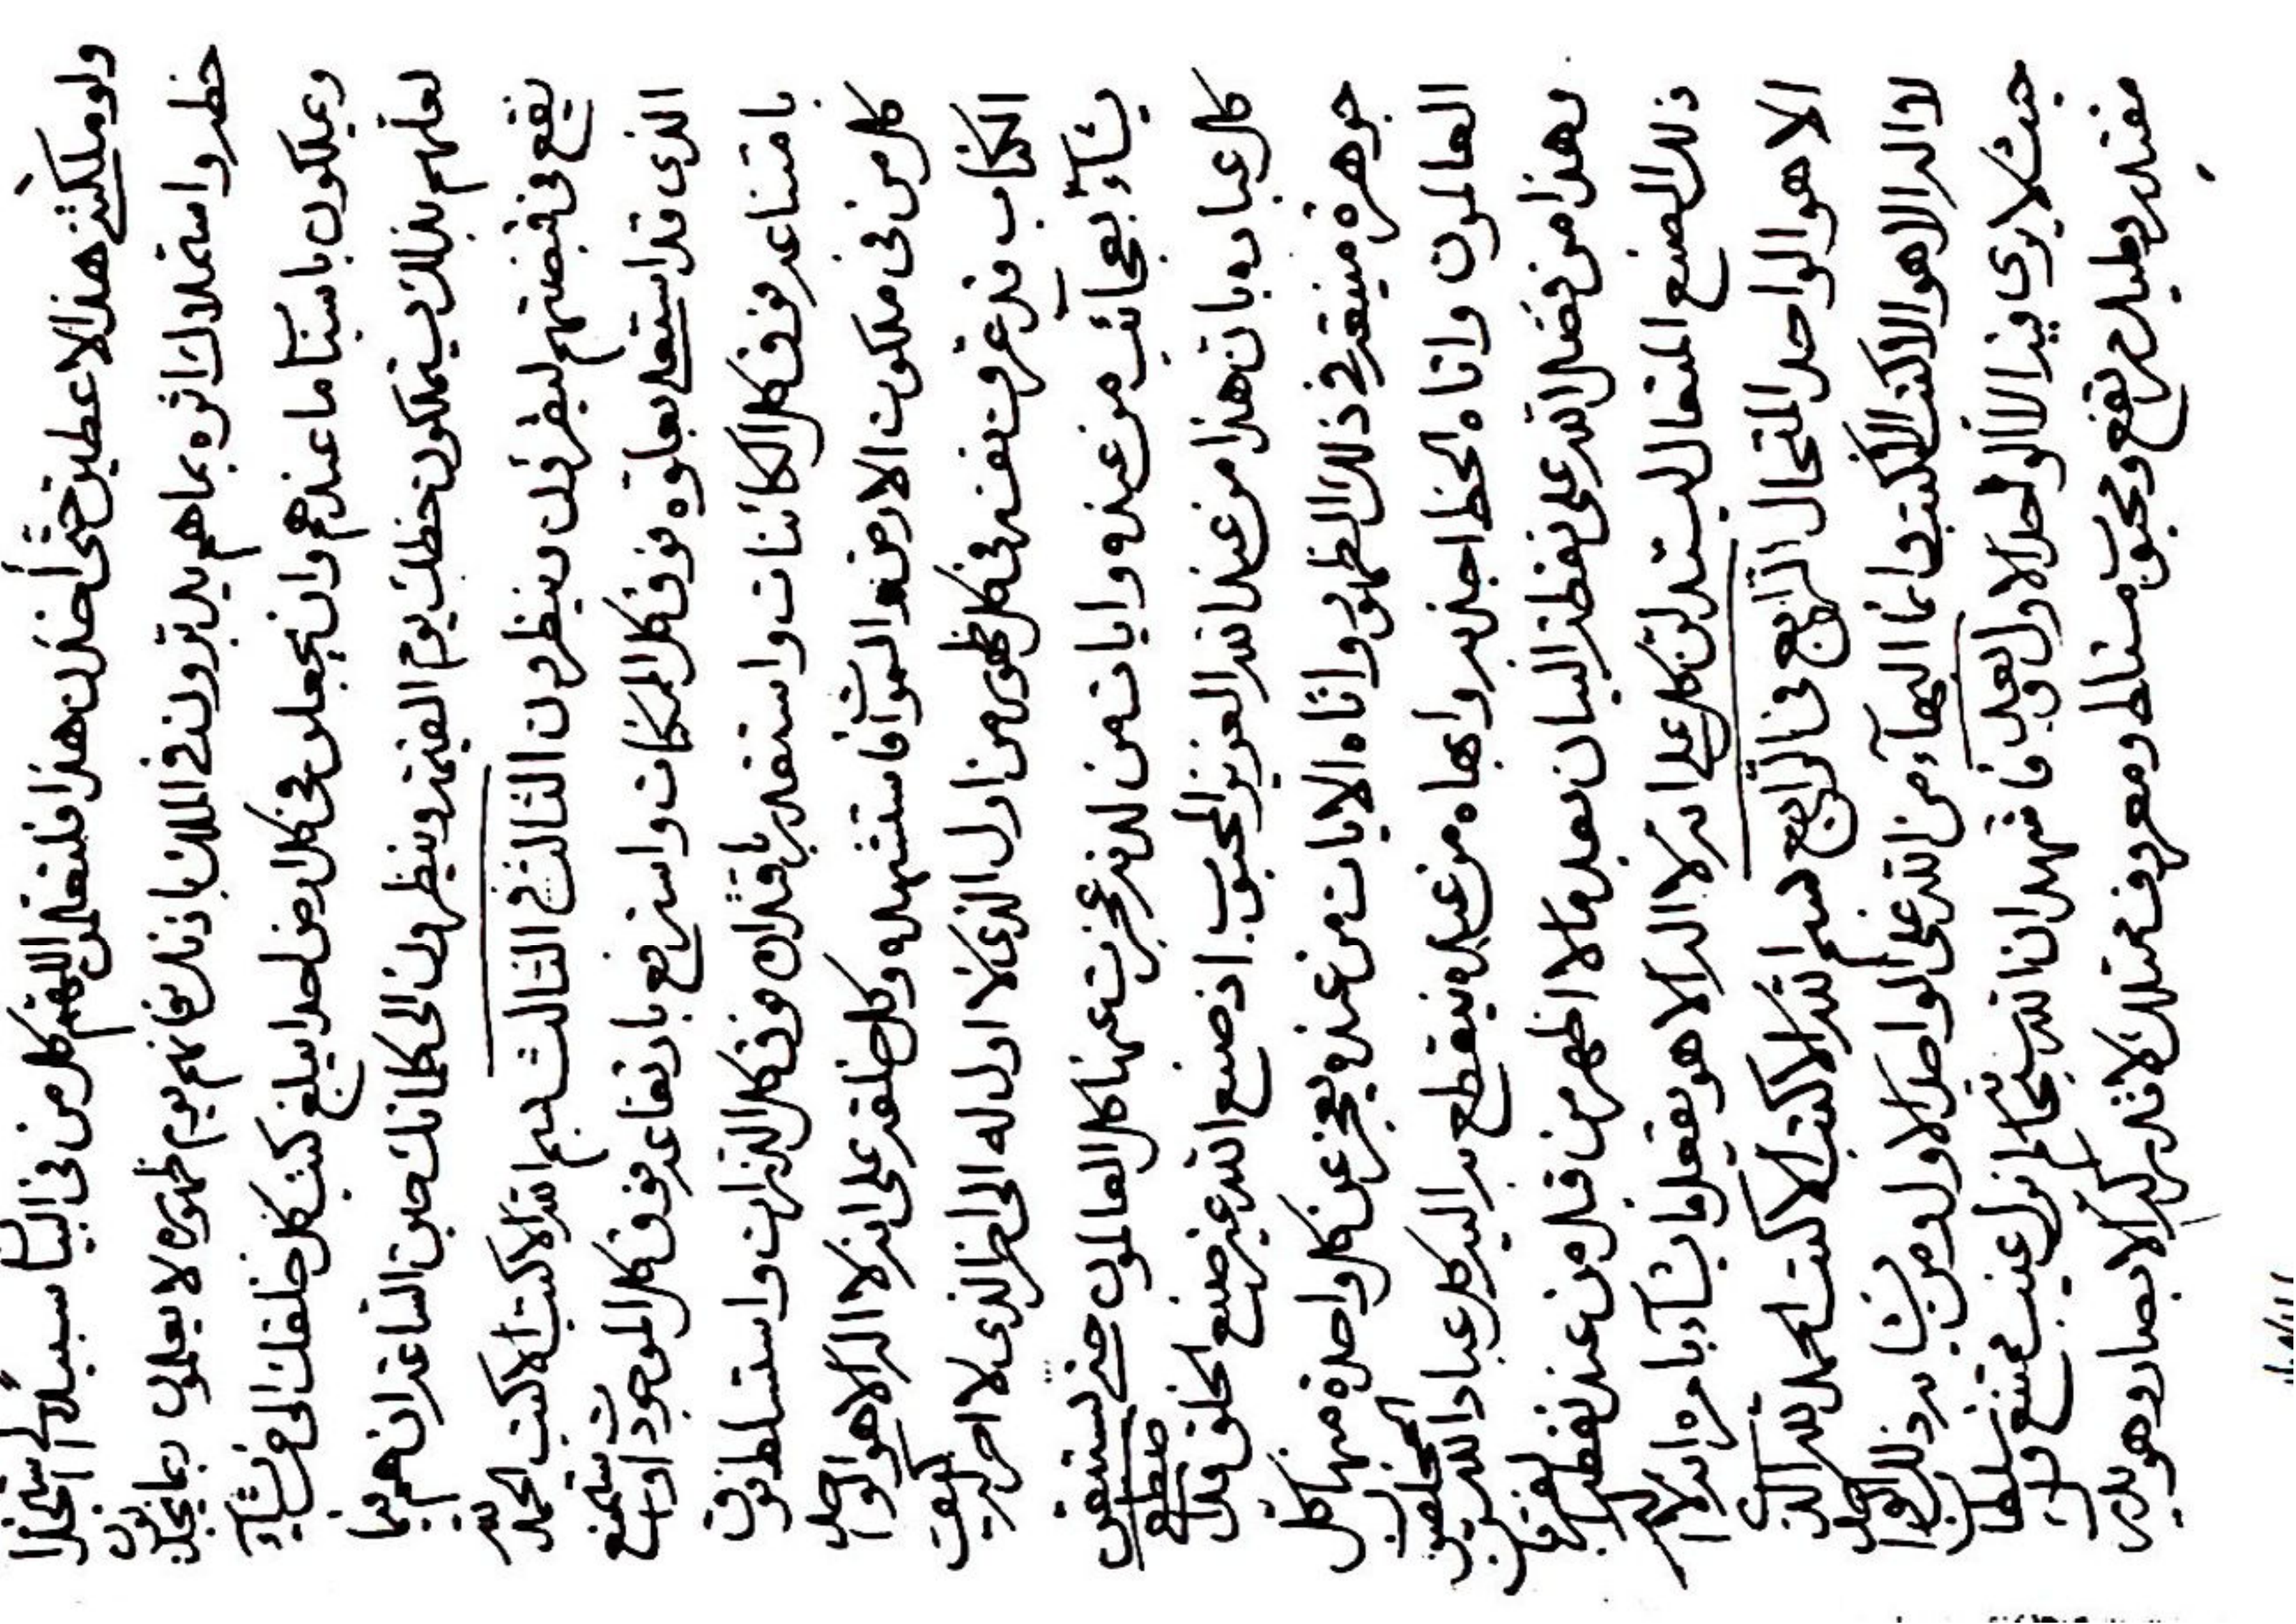 ولو ملكتني هذا لاعطين حتى اخذن هذا فلتعلمن اللهم كل من في البيان سبيل استجلاب
خط واستملاك اثره بما هم يدبرون في الملك باذنك فانهم يوم ظهوره لا يعلمون بما يجذبون
ويملكون باسباب ما عندهم وان تجعلن في كل ارض احدا يبلغ كتب كل خلقك الى من تشاء
لعلهم بذلك يستملكون خطك يوم القيمة وينظرون الى كلماتك حين الساعة ان هم فيما
يقع في قبضتهم ينظرون الثالث في الثالث بسم الله الاكتب الاكتب الحمد لله
الذي قد استعلى بعلوه فوق كل الممكنات واسترفع بارتفاعه فوق كل الموجودات واستمنع
بامتناعه فوق كل الكائنات واستقدر باقتداره فوق كل الذرات واستسلط فوق
كل من في ملكوت الارض والسموات فاستشهده وكل خلقه على انه لا اله الا هو الواحد
الكتاب قد عرف نفسه في كل ظهور من اول الذي لا اول له الى اخر الذي لا اخر له كيف
يشاء بعجائب من عنده وايات من لدنه عجزت عنها كل العالمون حتى يستيقن
كل عباده بان هذا من عند الله العزيز المحبوب اذ صنع الله غير صنع الخلق قد اصطفى
جوهرة منيعة في ذلك الظهور واتاه الايات من عنده يعجز عن كل واحدة منها كل
العالمون واتاه الخط اجذبه وابهاه من عنده ينقطع به اليه كل عباد الله المخلصين
وهذا من فضل الله على نقطة البيان بعد ما لا اظهر من قبل من عند نقطة الفرقان
ذلك الصنع المتعال ليستدلن كل على انه لا اله الا هو يفعل ما يشاء بامره انه لا اله
الا هو الواحد المتحال الرابع في الرابع بسم الله الاكتب الاكتب الحمد لله الذي
لا اله الا هو الاكتب الاكتب وانما البهاء من الله على الواحد الاول ومن يشابه ذلك الواحد
حيث لا يرى فيه الا الواحد الاول وبعد فاشهد ان الله سبحانه لم يزل غيب ممتنع وسلطان
مقتدر ومليك مرتفع ومحبوب ومعروف ممتلك لا تدركه الابصار وهو يدرك